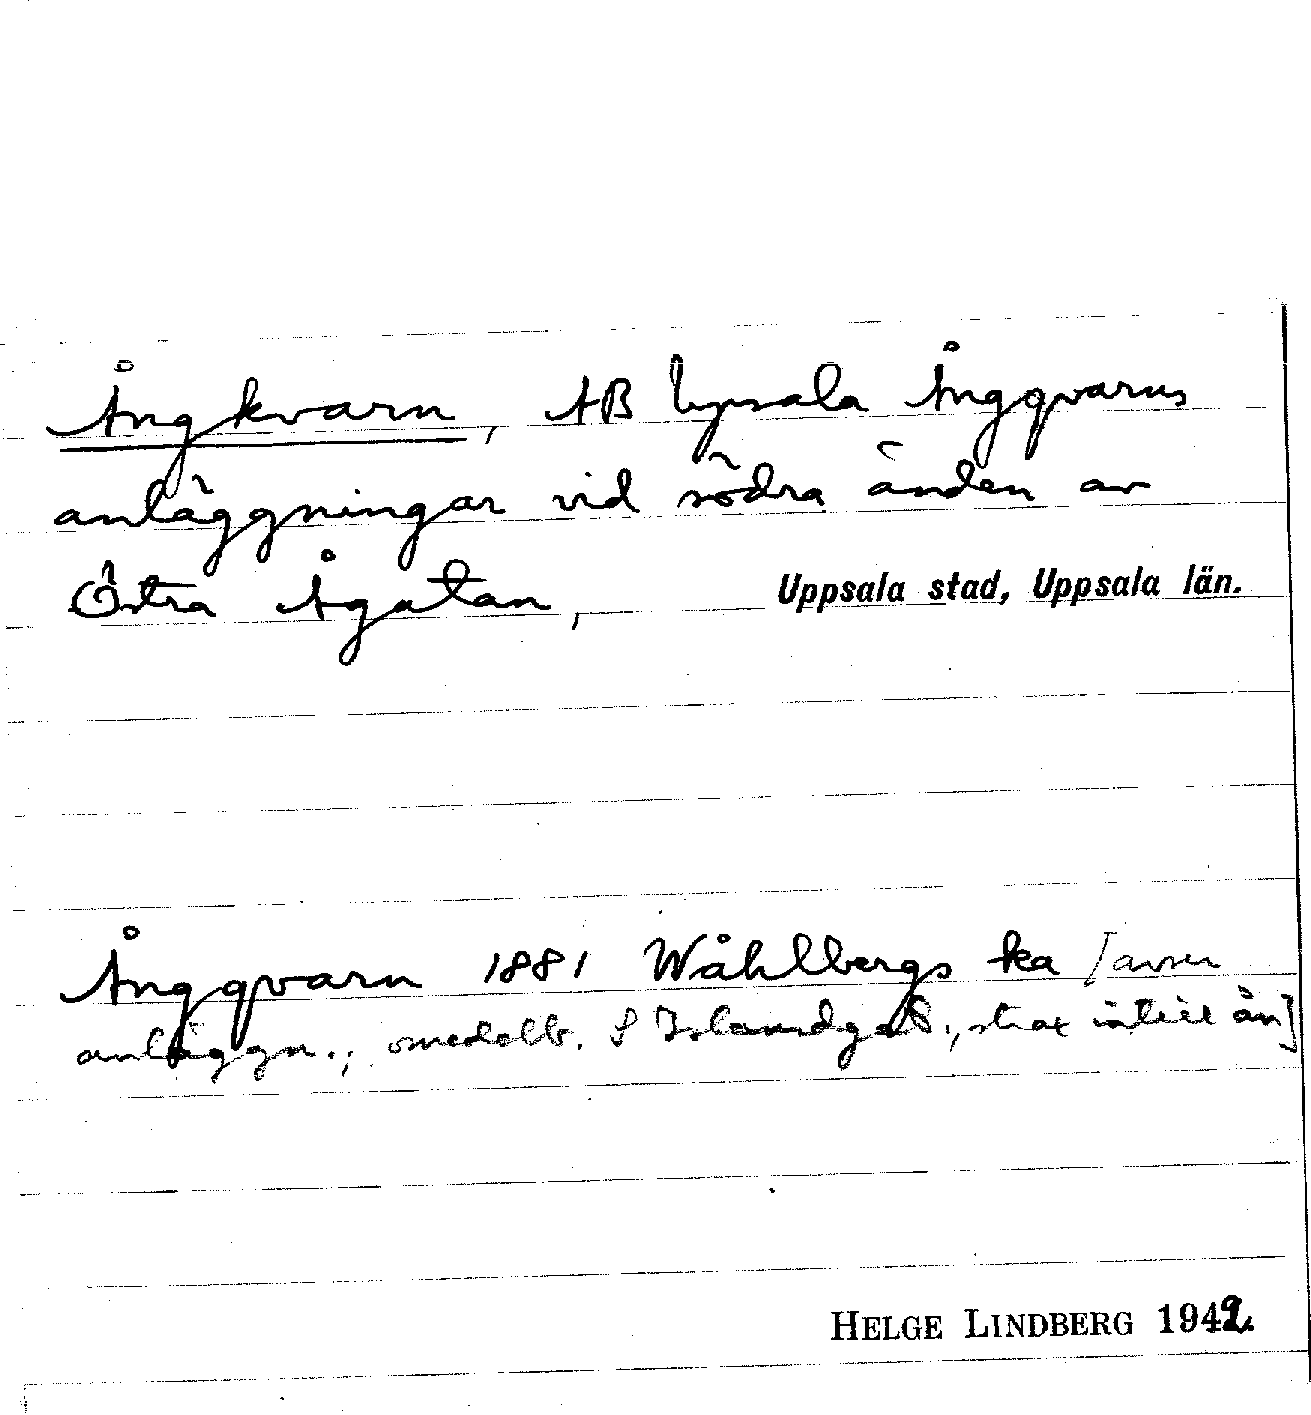 Ångkvarn, AB Upsala Ångqvarns
anläggningar vid södra änden av
Östra Ågatan, Uppsala stad, Uppsala län.
Ångqvarn 1881 Wåhlbergs ka [avser
anläggn., omedelb. S Islandsgat., strax intill ån]
HELGE LINDBERG 1942.